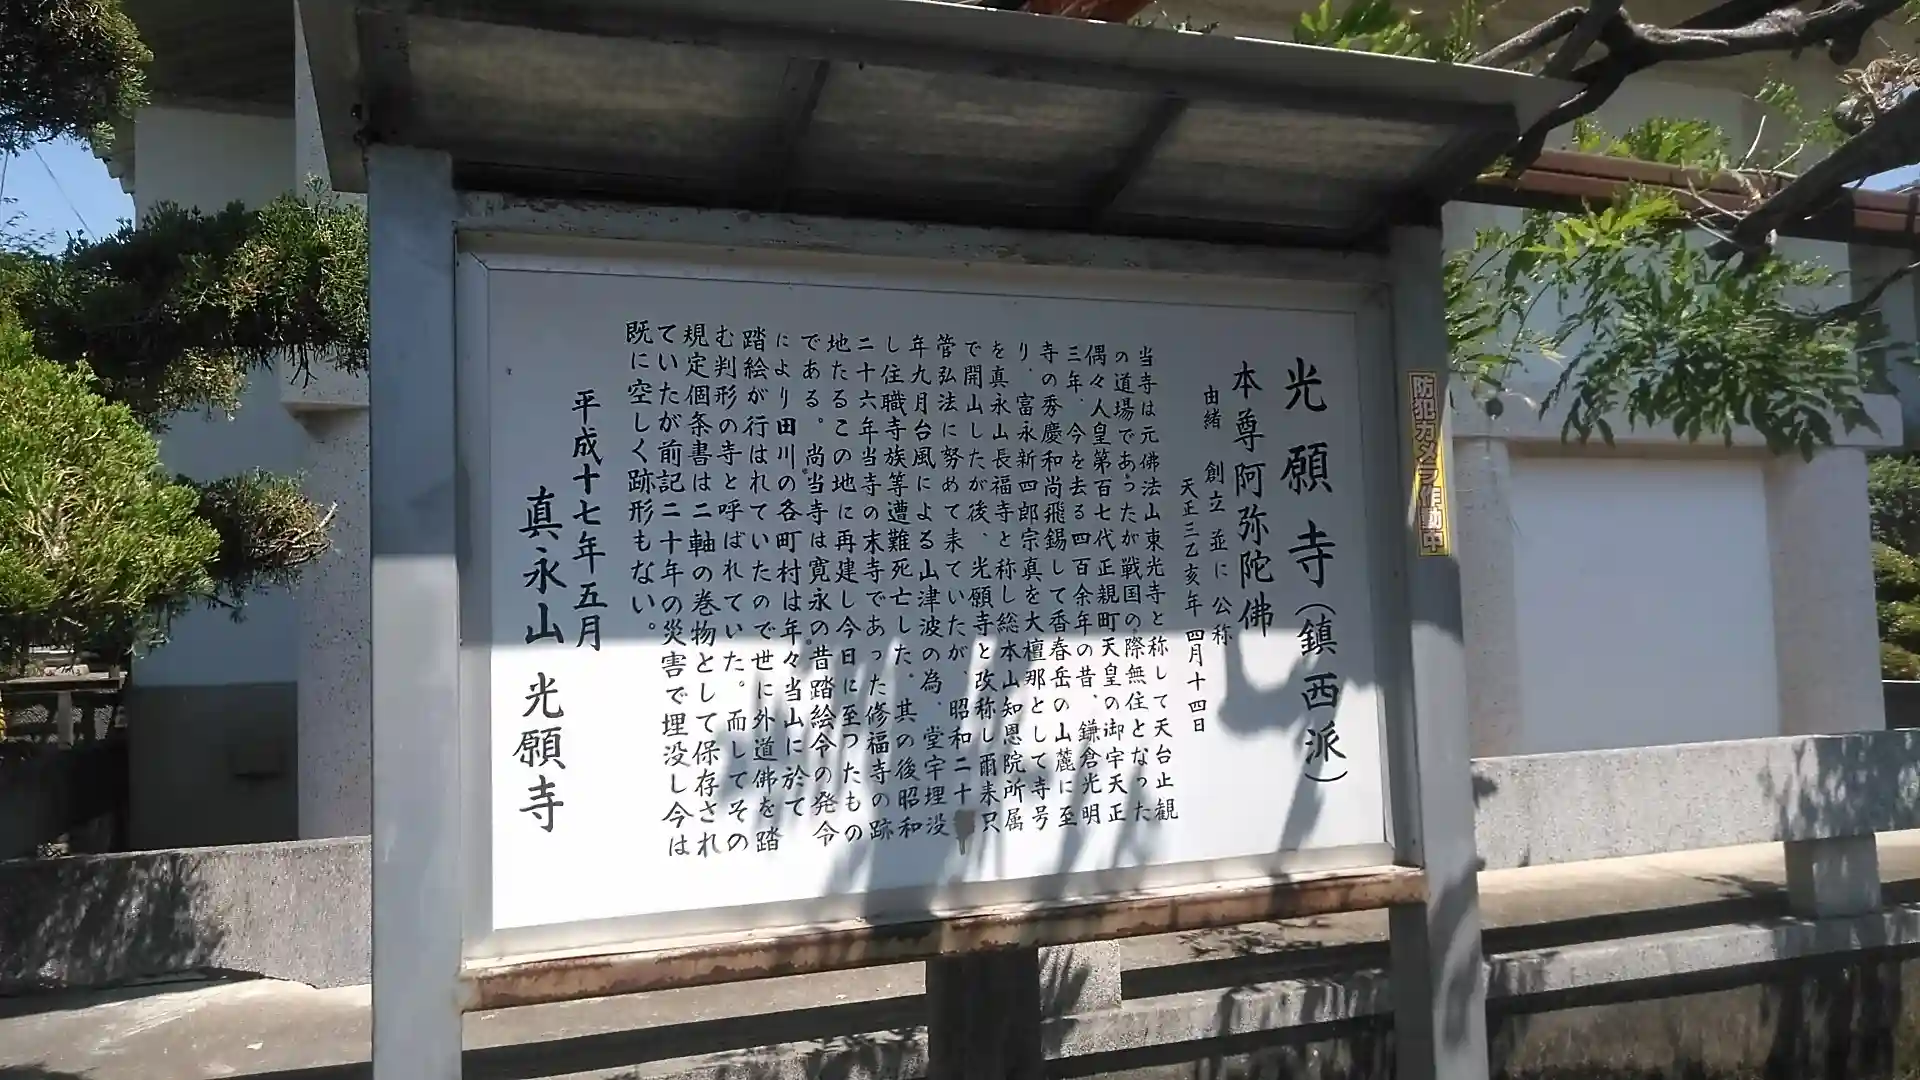 光願寺(鎮西派)
本尊阿弥陀佛
由緒 創立並に公称
天正三乙亥年四月十四日
当寺は元佛法山東光寺と称して天台止観
の道場であったが戦国の際無住となった
偶々人皇第百七代正親町天皇の御宇天正
三年、今を去る四百余年の昔、鎌倉光明
寺の秀慶和尚飛錫して香春岳の山麓に至
り、富永新四郎宗真を大檀那として寺号
を真永山長福寺と称し総本山知恩院所属
で開山したが後、光願寺と改称し爾来只
管弘法に努めて来ていたが、昭和二十
年九月台風による山津波の為、堂宇埋没
し住職寺族等遭難死亡した、其の後昭和
二十六年当寺の末寺であった修福寺の跡
地たるこの地に再建し今日に至ったもの
である。尚当寺は寛永の昔踏絵令の発令
により田川の各町村は年々当山に於て
踏絵が行はれていたので世に外道佛を踏
む判形の寺と呼ばれていた。而してその
規定個条書は二軸の巻物として保存され
ていたが前記二十年の災害で埋没し今は
既に空しく跡形もない。
平成十七年五月
真永山 光願寺
防犯カメラ作動中